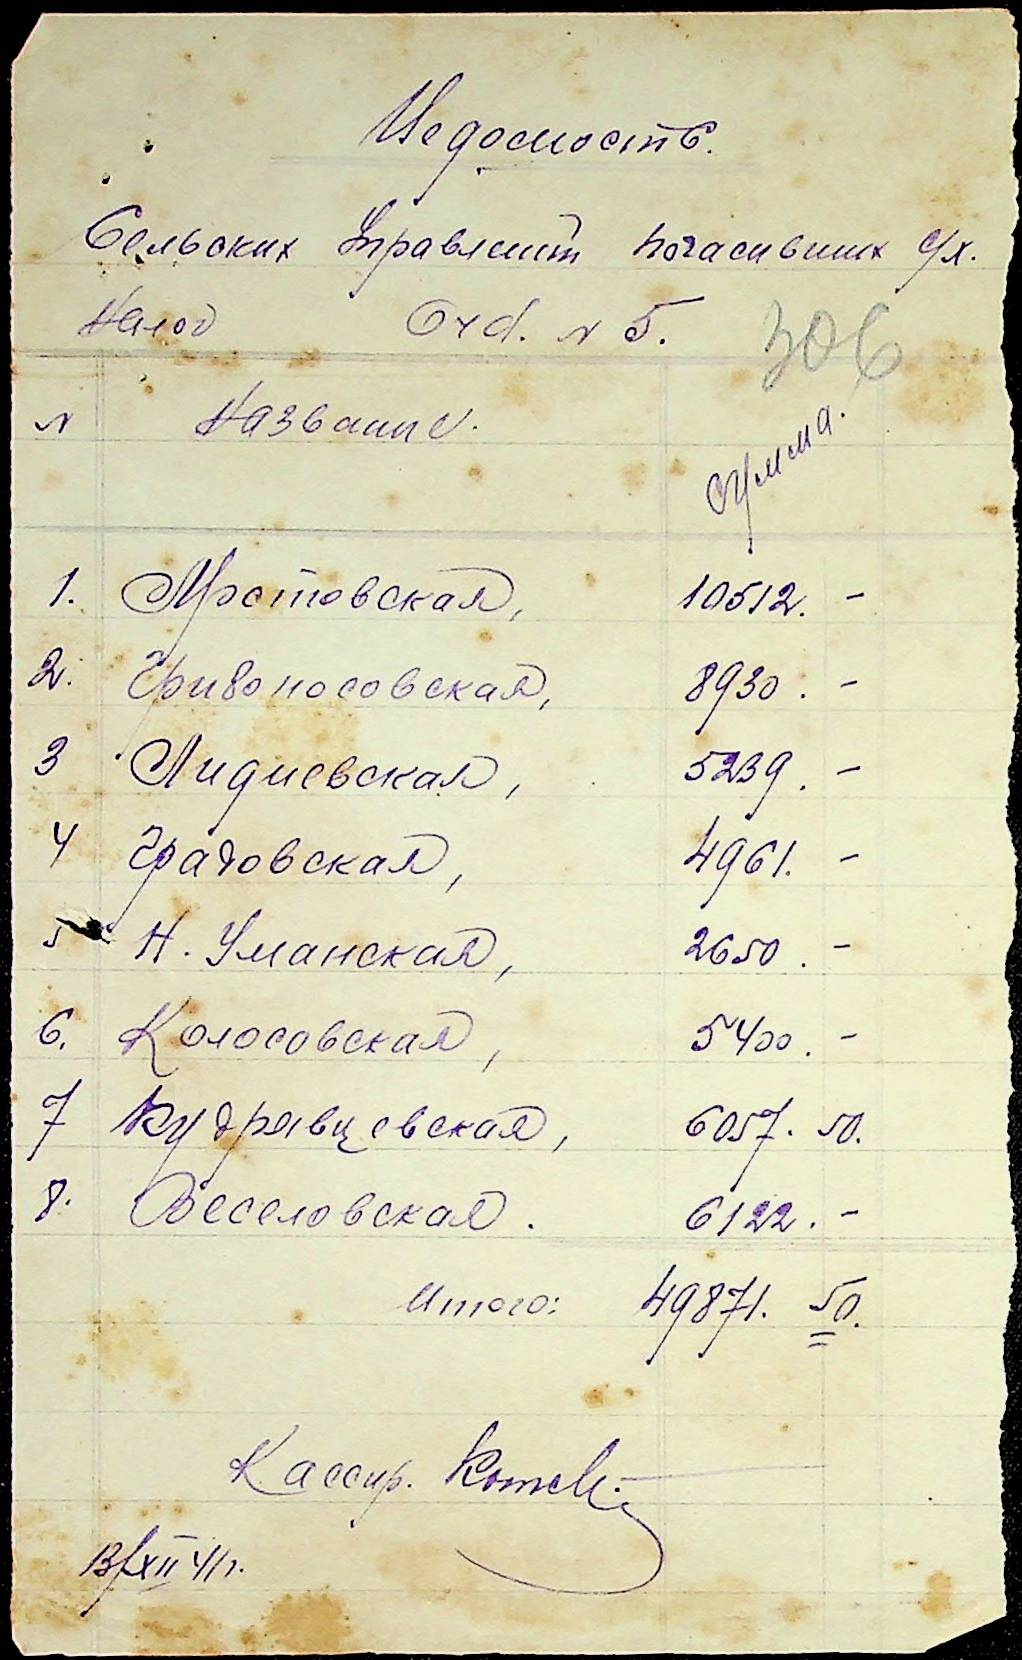 Ведомость.
Сельских Управлений погасивших с/х.
Налог Ord. N 5.
306
N Название. Сумма.
1. Мостовская, 10512. -
2. Кривоносовская, 8930. -
3 Лидиевская, 5239. -
4 Градовская, 4961. -
5 Н. Уманская, 2650. -
6. Колосовская, 5400. -
7 Кудрявцевская, 6057. 50.
8. Веселовская. 6122. -
Итого: 49871. 50.
Кассир.
13/XII 41г.